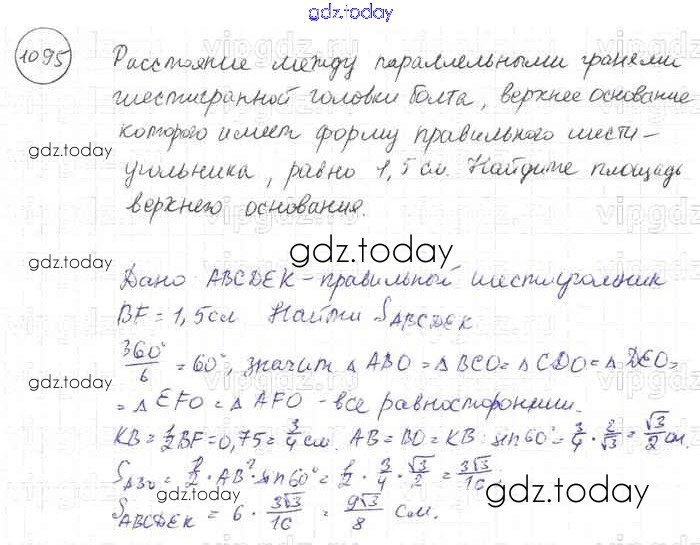 gdz.today
1095
Расстояние между параллельными гранями
шестигранной головки болта, верхнее основание
которого имеет форму правильного шести-
gdz.today
угольника, равно 1,5 см. Найдите площадь
верхнего основания.
gdz.today
gdz.today
Дано ABCDEK - правильной шестиугольник
BF = 1,5 см Найти S_ABCDEK
360°/6 = 60°, значит △ABO = △BCO = △CDO = △DEO =
gdz.today
= △EFO = △AFO - все равносторонние.
KB = 1/2 BF = 0,75 = 3/4 см. AB = BO = KB : sin 60° = 3/4 · 2/√3 = √3/2 см.
S_ABO = 1/2 · AB² · sin 60° = 1/2 · 3/4 · √3/2 = 3√3/16
gdz.today
gdz.today
S_ABCDEK = 6 · 3√3/16 = 9√3/8 см.